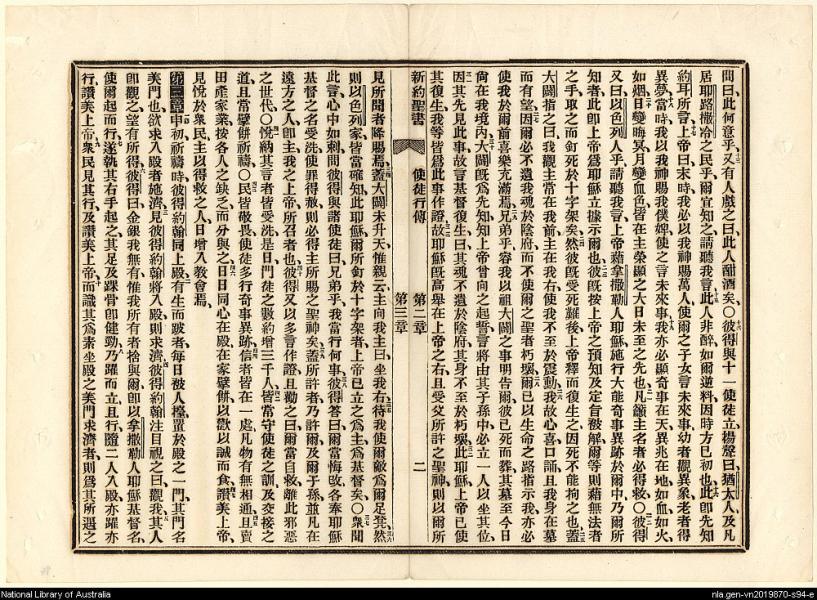 問曰此何意乎又有人戲之曰此人酣酒矣〇彼得與十一使徒立揚聲曰猶太人及凡
居耶路撒冷之民乎爾宜知之請聽我言此人非醉如爾逆料因時方巳初也此卽先知
約耳所言上帝曰末時我必以我神賜萬人使爾之子女言未來事幼者觀異象老者得
異夢當時我以我神賜我僕婢使之言未來事我亦必顯奇事在天異兆在地如血如火
如烟日變晦冥月變血色皆在主榮顯之大日未至之先也凡籲主名者必得救〇彼得
又曰以色列人乎請聽我言上帝藉拿撒勒人耶穌施行大能奇事異跡於爾中乃爾所
知者此卽上帝爲耶穌立據示爾也彼旣按上帝之預知及定旨被解爾等則藉無法者
之手取之而釘死於十字架矣然彼旣受死難後上帝釋而復生之因死不能拘之也蓋
大闢指之曰我觀主常在我前主在我右使我不至於震動我故心喜口誦且我身在墓
而有望因爾必不遺我魂於陰府而不使爾之聖者朽壞爾已以生命之路指示我亦必
使我於爾前喜樂充滿焉兄弟乎容我以祖大闢之事明告爾彼已死而葬其墓至今日
尙在我境內大闢旣爲先知知上帝曾向之起誓言將由其子孫中必立一人以坐其位
因其先見此事故言基督復生曰其魂不遺於陰府其身不至於朽壞此耶穌上帝已使
其復生我等皆爲此事作證故耶穌旣高舉在上帝之右且受父所許之聖神則以爾所
新約聖書 使徒行傳 第二章 第三章 二
見所聞者降賜焉蓋大闢未升天惟親云主向我主曰坐我右待我使爾敵爲爾足凳然
則以色列家皆當確知此耶穌爾所釘於十字架者上帝已立之爲主爲基督矣〇衆聞
此言心中如刺問彼得與諸使徒曰兄弟乎我當行何事彼得答曰爾當悔改各奉耶穌
基督之名受洗使罪得赦則必得主所賜之聖神矣蓋所許者乃許爾及爾子孫並凡在
遠方之人卽主我之上帝所召者也彼得又以多言作證且勸之曰爾當自救離此邪惡
之世代〇悅納其言者皆受洗是日門徒之數約增三千人皆常守使徒之訓及交接之
道且常擘餅祈禱〇民皆敬畏使徒多行奇事異跡信者皆在一處凡物有無相通且賣
田產家業按各人之缺乏而分與之日日同心在殿在家擘餅以歡以誠而食讚美上帝
見悅於衆民主以得救之人日增入教會焉
第三章申初祈禱時彼得約翰同上殿有生而跛者每日被人擡置於殿之一門其門名
美門也欲求入殿者施濟見彼得約翰將入殿則求濟彼得約翰注目視之曰觀我其人
卽觀之望有所得彼得曰金銀我無有惟我所有者捨與爾卽以拿撒勒人耶穌基督名
使爾起而行遂執其右手起之其足及踝骨卽健勁乃躍而立且行隨二人入殿亦躍亦
行讚美上帝衆民見其行及讚美上帝而識其爲素坐殿之美門求濟者則爲其所遇之
National Library of Australia
nla.gen-vn2019870-s94-e